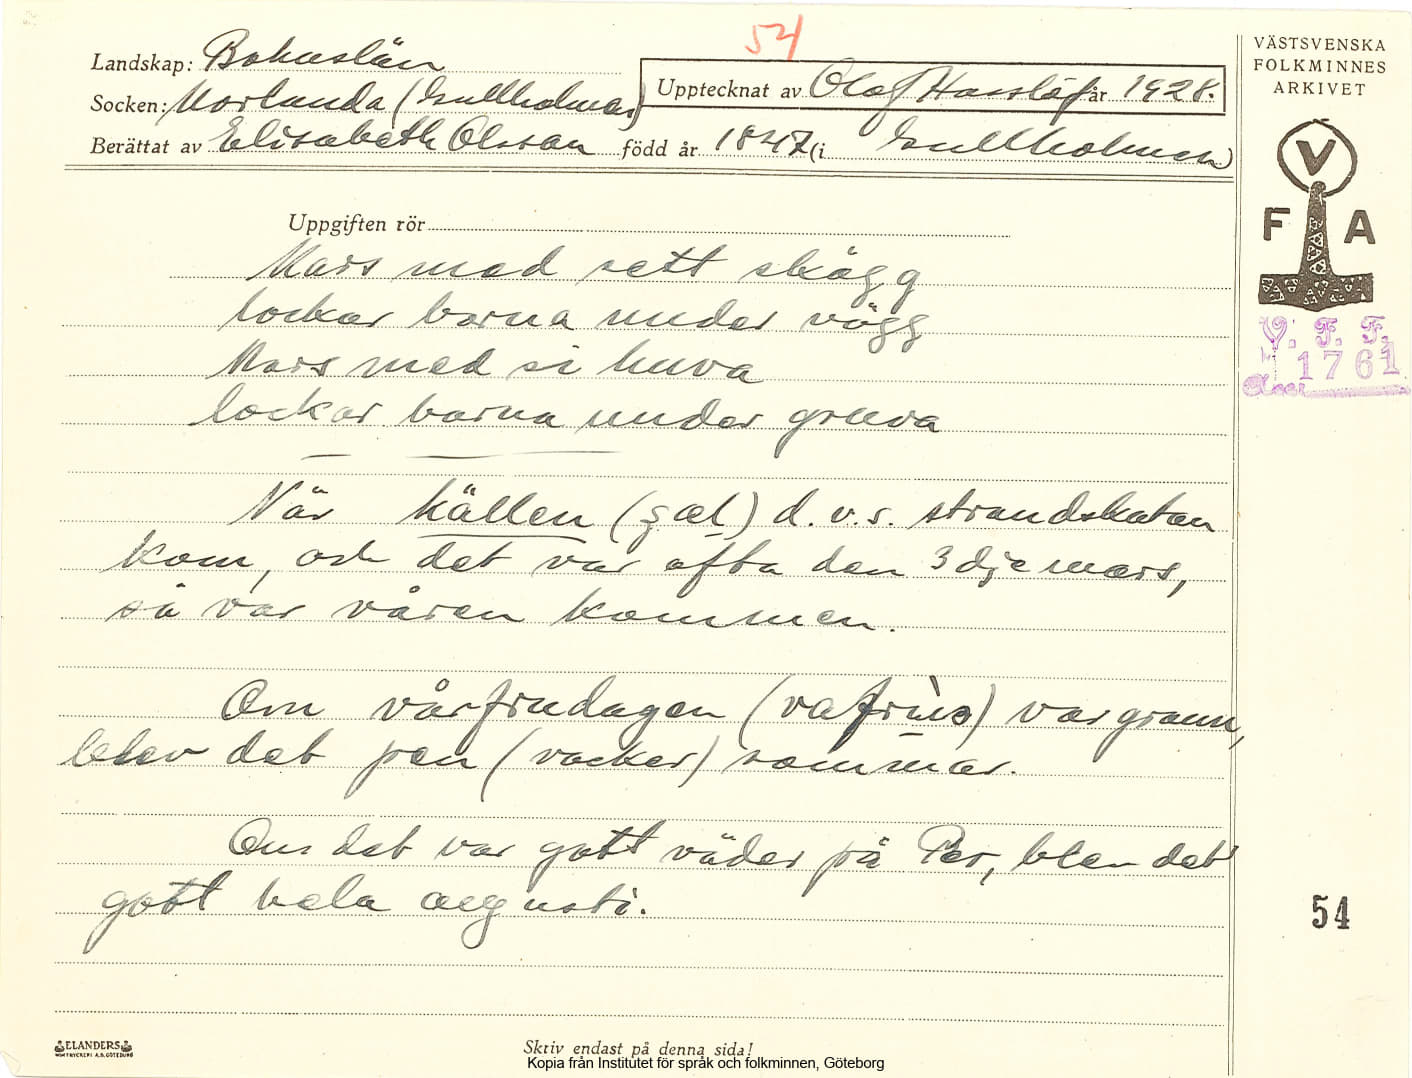 54
Landskap: Bohuslän
Socken: Morlanda (Gullholmen)
Upptecknat av Olof Hasslöf år 1928.
Berättat av Elisabeth Olsson född år 1847 (i Gullholmen)
VÄSTSVENSKA
FOLKMINNES
ARKIVET
V
F A
V. F. F.
1761
Uppgiften rör
Mars med sett skägg
lockar barna under vägg
Mars med si huva
lockar barna under gruva
När källen (ʒæl) d.v.s. strandskatan
kom, och det var ofta den 3dje mars,
så var våren kommen.
Om vårfrudagen (vafrùs) var grann,
blev det pen (vacker) sommar.
Om det var gott väder på Per, blev det
gott hela augusti.
54
ELANDERS
Skriv endast på denna sida!
Kopia från Institutet för språk och folkminnen, Göteborg